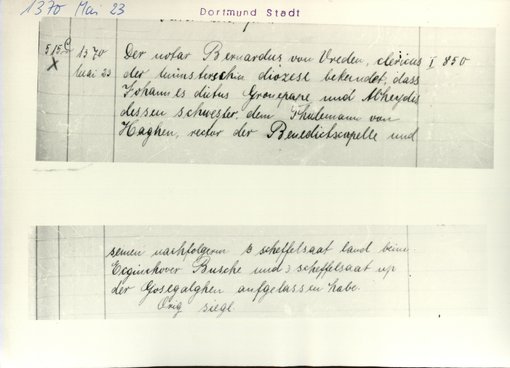 1370 Mai 23
Dortmund Stadt
515 C 1370 Der notar Bernardus von Vreden, clericus I 850
X Mai 23 der münsterschen diozese bekundet, dass
Johannes dictus Gronepape und Alheydis
dessen schwester, dem Thidemann von
Haghen, rector der Benedictscapelle und
seinen nachfolgern 3 scheffelsaat land beim
Busche und 3 scheffelsaat up
der Gosegalghen aufgelassen habe.
Orig siegl.